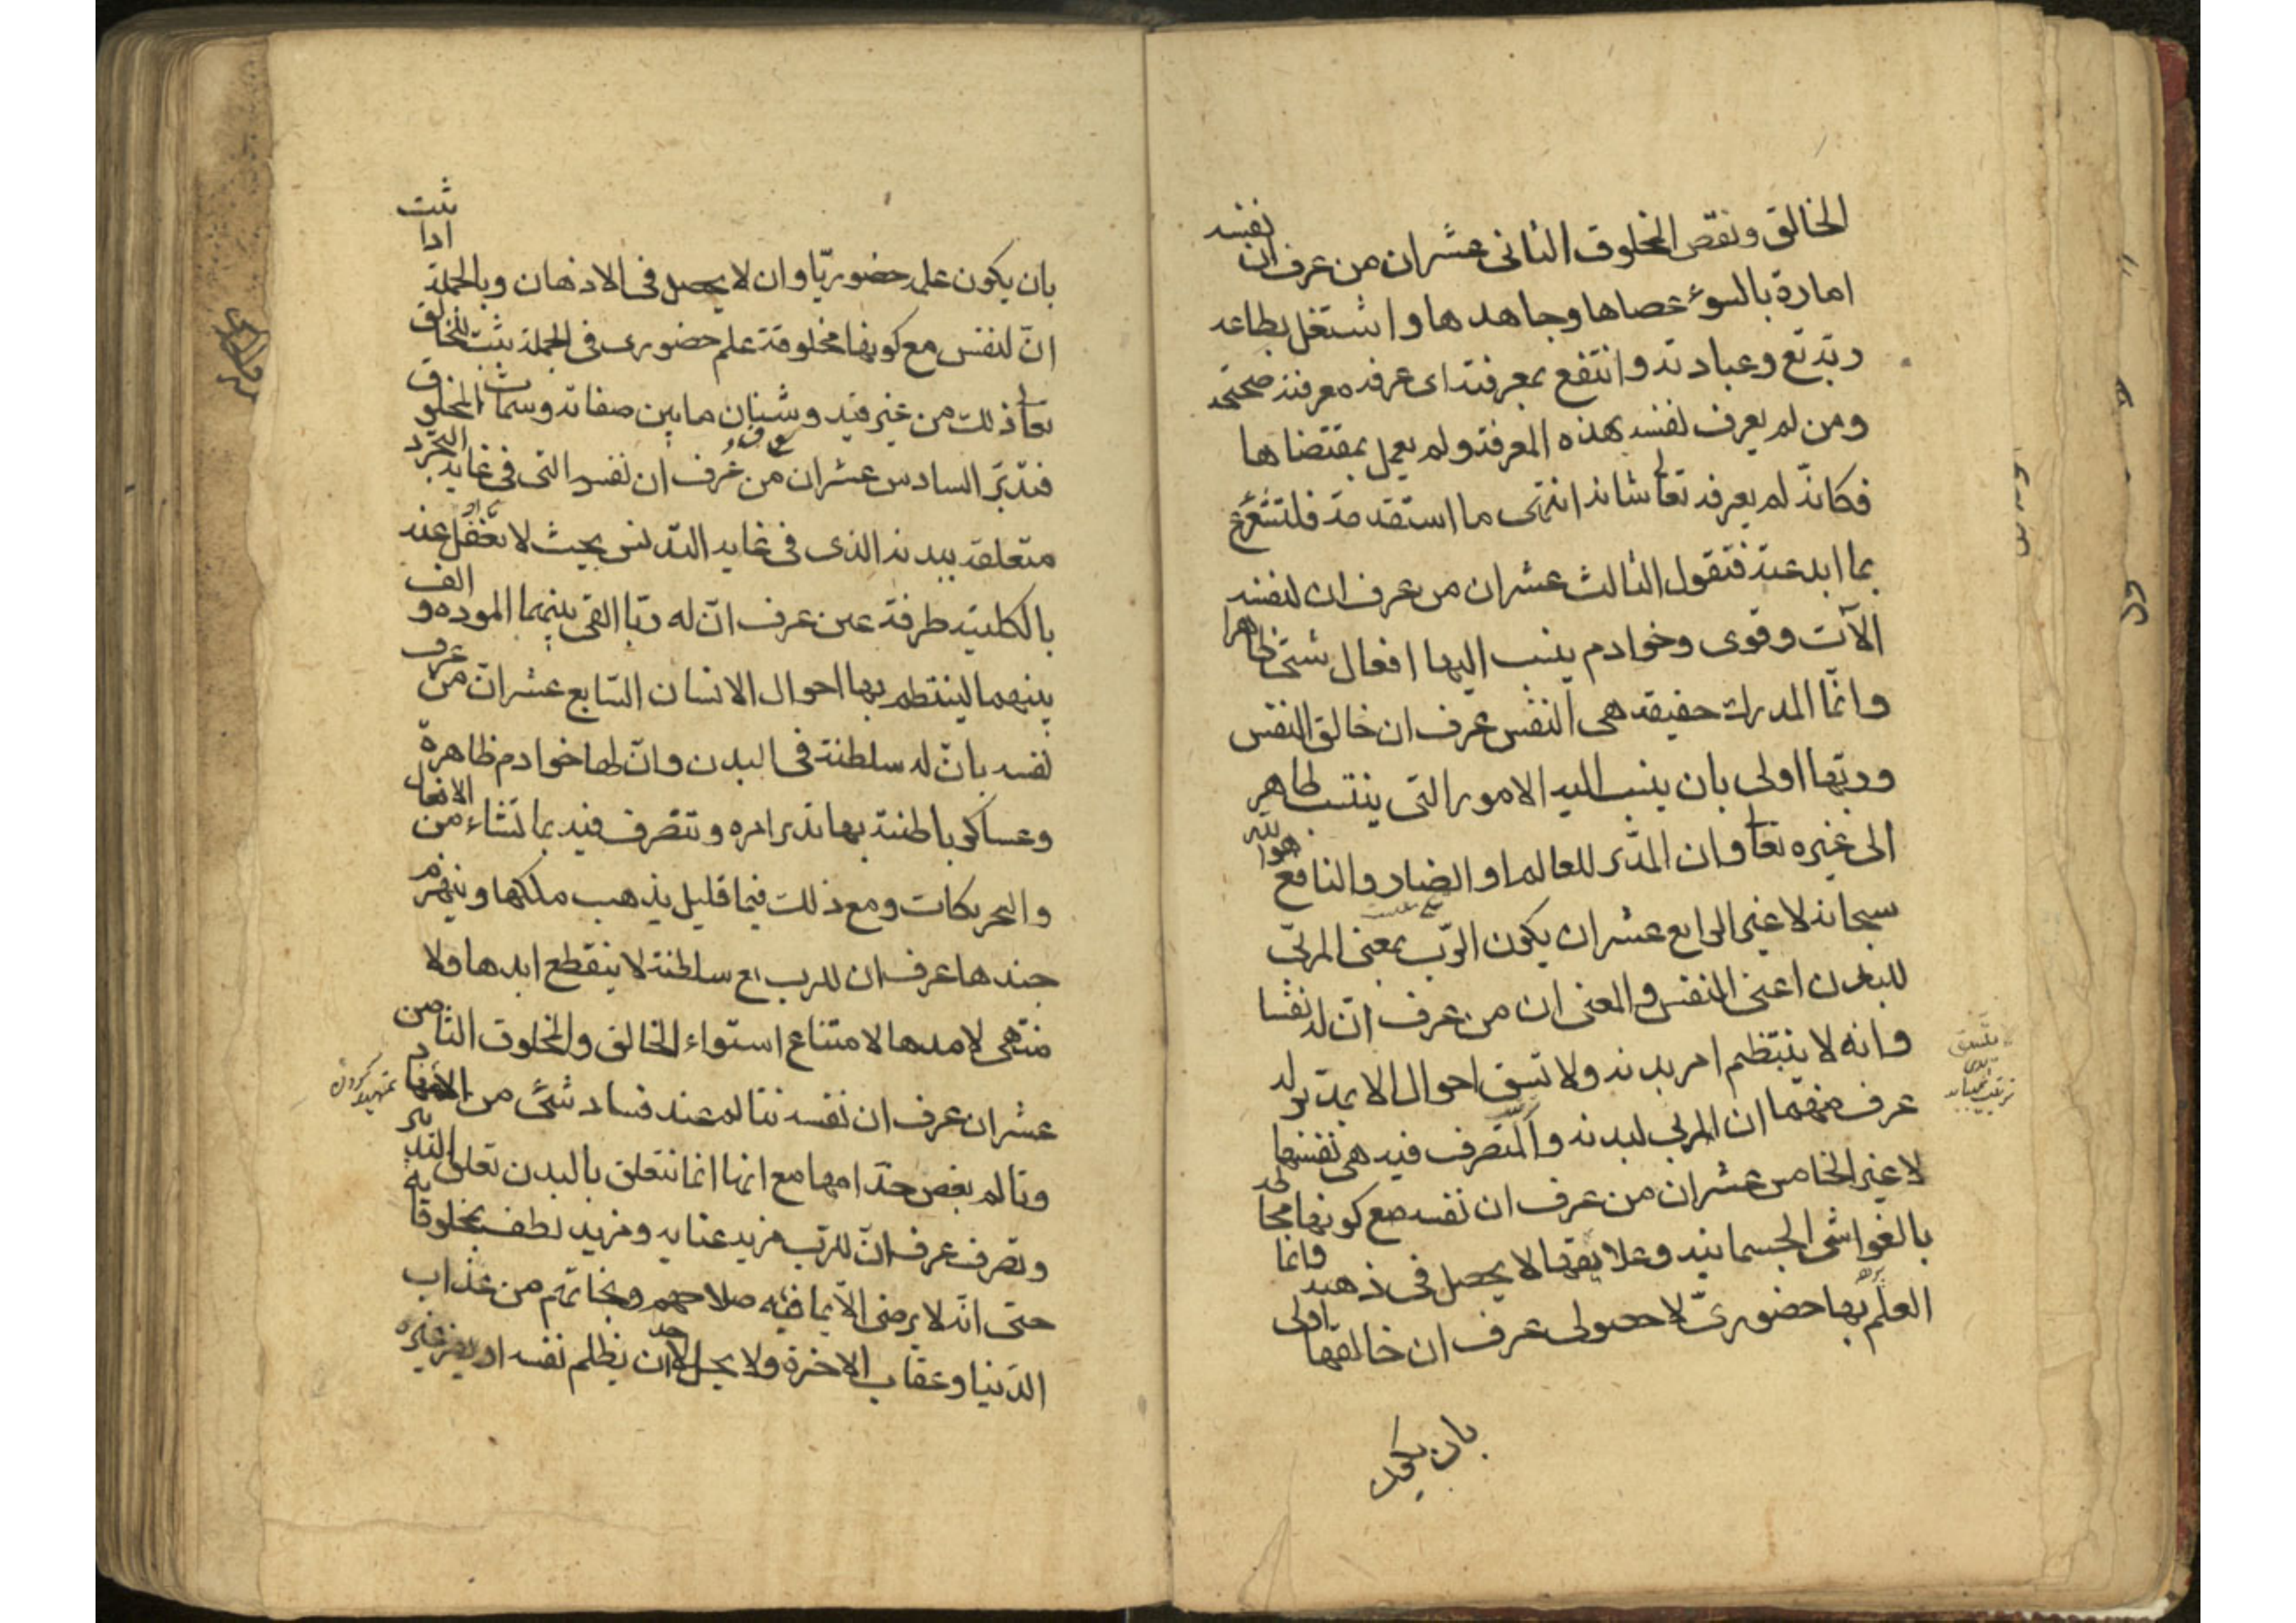 الخالق ونقص المخلوق الثانى عشران من عرف ان نفسه
امارة بالسوء عصاها وجاهدها واشتغل بطاعه
ربه تع وعبادته وانتفع بمعرفته اى عرفه معرفة صحيحه
ومن لم يعرف نفسه بهذه المعرفة ولم يعمل بمقتضاها
فكانّه لم يعرفه تعالى شانه انتهى ما استقدمته فلنشرع
بما ابدعته فنقول الثالث عشران من عرف ان لنفسه
الآت وقوى وخوادم ينسب اليها افعال شتى ظاهرا
وانّما المدرك حقيقه هى النفس عرف ان خالق النفس
وربّها اولى بان ينسب اليه الامور التى ينتسب ظاهر
الى غيره تعالى وان المدبّر للعالم او الضار والنافع هو الله
سبحانه لا غير الرابع عشران يكون الرّب بمعنى المربّى
للبدن اعنى النفس والمعنى ان من عرف انّ له نفسا
وانه لا ينتظم امر بدنه ولا تيسق احوال الا بمدبّر له
عرف منهما ان المربى لبدنه والمتصرف فيه هى نفسها
لا غير الخامس عشران من عرف ان نفسه مع كونها مجا
بالغواشى الجسمانيه وعلايقها لا يحصل فى ذهنه وانما
العلم بها حضورىّ لا حصولى عرف ان خالقها اولى
بان يكون
بان يكون علمه حضوريّا وان لا يحصل فى الاذهان وبالجملة اذا ثبت
انّ لنفس مع كونها مخلوقة علم حضورى فى الجملة يثبت للخالق
تعالى ذلك من غير قيد وشتان ما بين صفاته وسمات المخلوق
فتدبّر السادس عشران من عرف ان نفسه التى فى غاية التجرّد
متعلقة ببدنه الذى فى غايه التدنس بحيث لا تغفل عنه
بالكلية طرفة عين عرف انّ له ربّا القى بينهما الموده و الف
بينهما لينتظم بها احوال الانسان السّابع عشر انّ من عرف
نفسه بانّ له سلطنة فى البدن وانّ لها خوادم ظاهرة
وعساكر باطنة بها تدبر امره وتتصّرف فيه بما تشاء من الافعال
والتحريكات ومع ذلك فيما قليل يذهب ملكها وينهزم
جندها عرف ان للرب تع سلطنة لا ينقطع ابدها ولا
منتهى لامدها لامتناع استواء الخالق والمخلوق الثامن
عشران عرف ان نفسه تتالم عند فساد شئ من
وتالم بعض خدّامها مع انها انما تتعلق بالبدن تعلق التدبير
وتصرف عرف انّ للرّب مزيد عنايه ومزيد لطف بمخلوقاته
حتى انّه لا يرضى الّا بما فيه صلاحهم ونجاتهم من عذاب
الدّنيا وعقاب الاخرة ولا يحل لاحد ان يظلم نفسه او يضر غيره